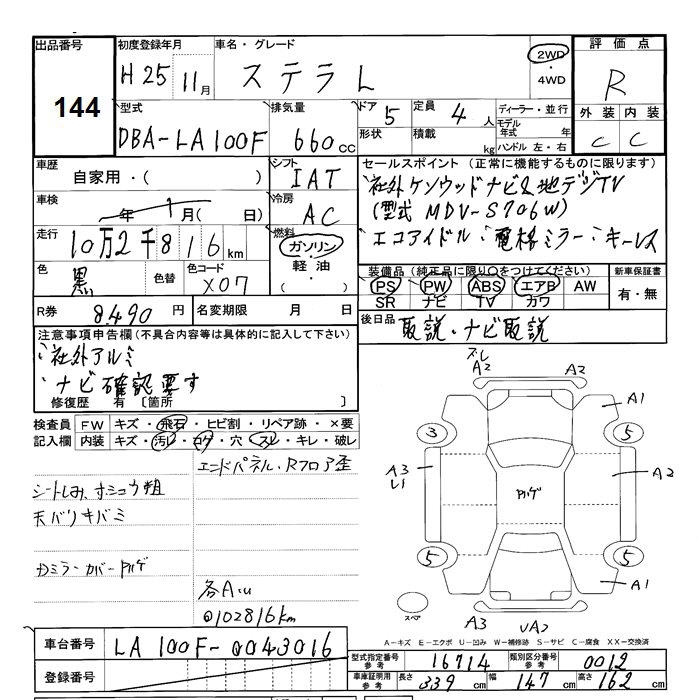 出品番号
144
初度登録年月
H25 11月
車名・グレード
ステラ L
2WD
・
4WD
評価点
R
型式
DBA-LA100F
排気量
660cc
ドア 5
定員 4人
形状
積載 kg
ディーラー・並行
モデル年式 年
ハンドル 左・右
外装 内装
C C
車歴
自家用・( )
シフト
IAT
車検
年 1月( 日)
冷房
AC
走行
10万2千816km
燃料
ガソリン・
軽油・
色
黒
色替
色コード
X07
セールスポイント(正常に機能するものに限ります)
社外ケンウッドナビ&地デジTV
(型式 MDV-S706W)
エコアイドル・電格ミラー・キーレス
装備品(純正品に限り○をつけてください)
PS PW ABS エアB AW
SR ナビ TV カワ
新車保証書
有・無
R券 8490円
名変期限 月 日
後日品 取説・ナビ取説
注意事項申告欄(不具合内容等は具体的に記入して下さい)
社外アルミ
ナビ確認要す
修復歴 有〔箇所 〕
検査員記入欄
FW キズ・飛石・ヒビ割・リペア跡・×要
内装 キズ・汚レ・コゲ・穴・スレ・キレ・破レ
エンドパネル・Rフロア歪
シートしみ、
天バリキバミ
ドミラーカバー
各A
@102816km
スレ
A2
A2
A1
3
5
A3
A2
5
5
A1
スペア
A3
A-キズ E-エクボ U-凹み W-補修跡 S-サビ C-腐食 XX-交換済
車台番号 LA100F-0043016
登録番号
型式指定番号 参考 16714
類別区分番号 参考 0012
車庫証明用 参考 長さ 339cm 幅 147cm 高さ 162cm